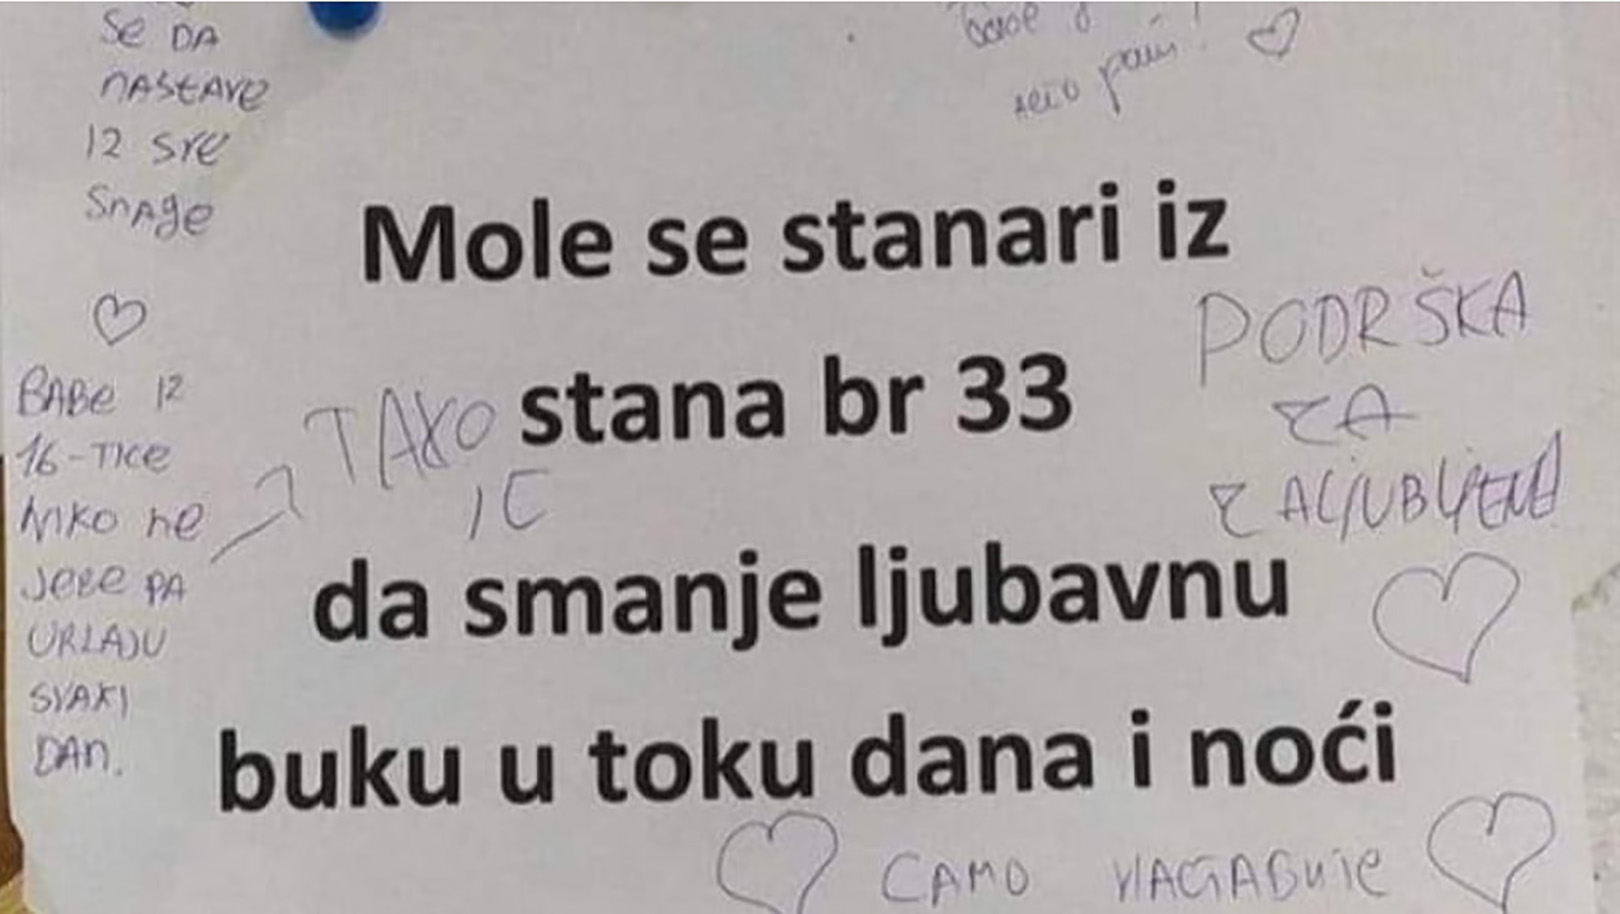 se DA
nastave
iz sve
snage
Mole se stanari iz
stana br 33
da smanje ljubavnu
buku u toku dana i noći
BABe iz
16-tice
niko ne
jebe pa
URLAJU
SVAKI
DAN.
TAKO
JE
PODRŠKA
ZA
ZALJUBLJENE